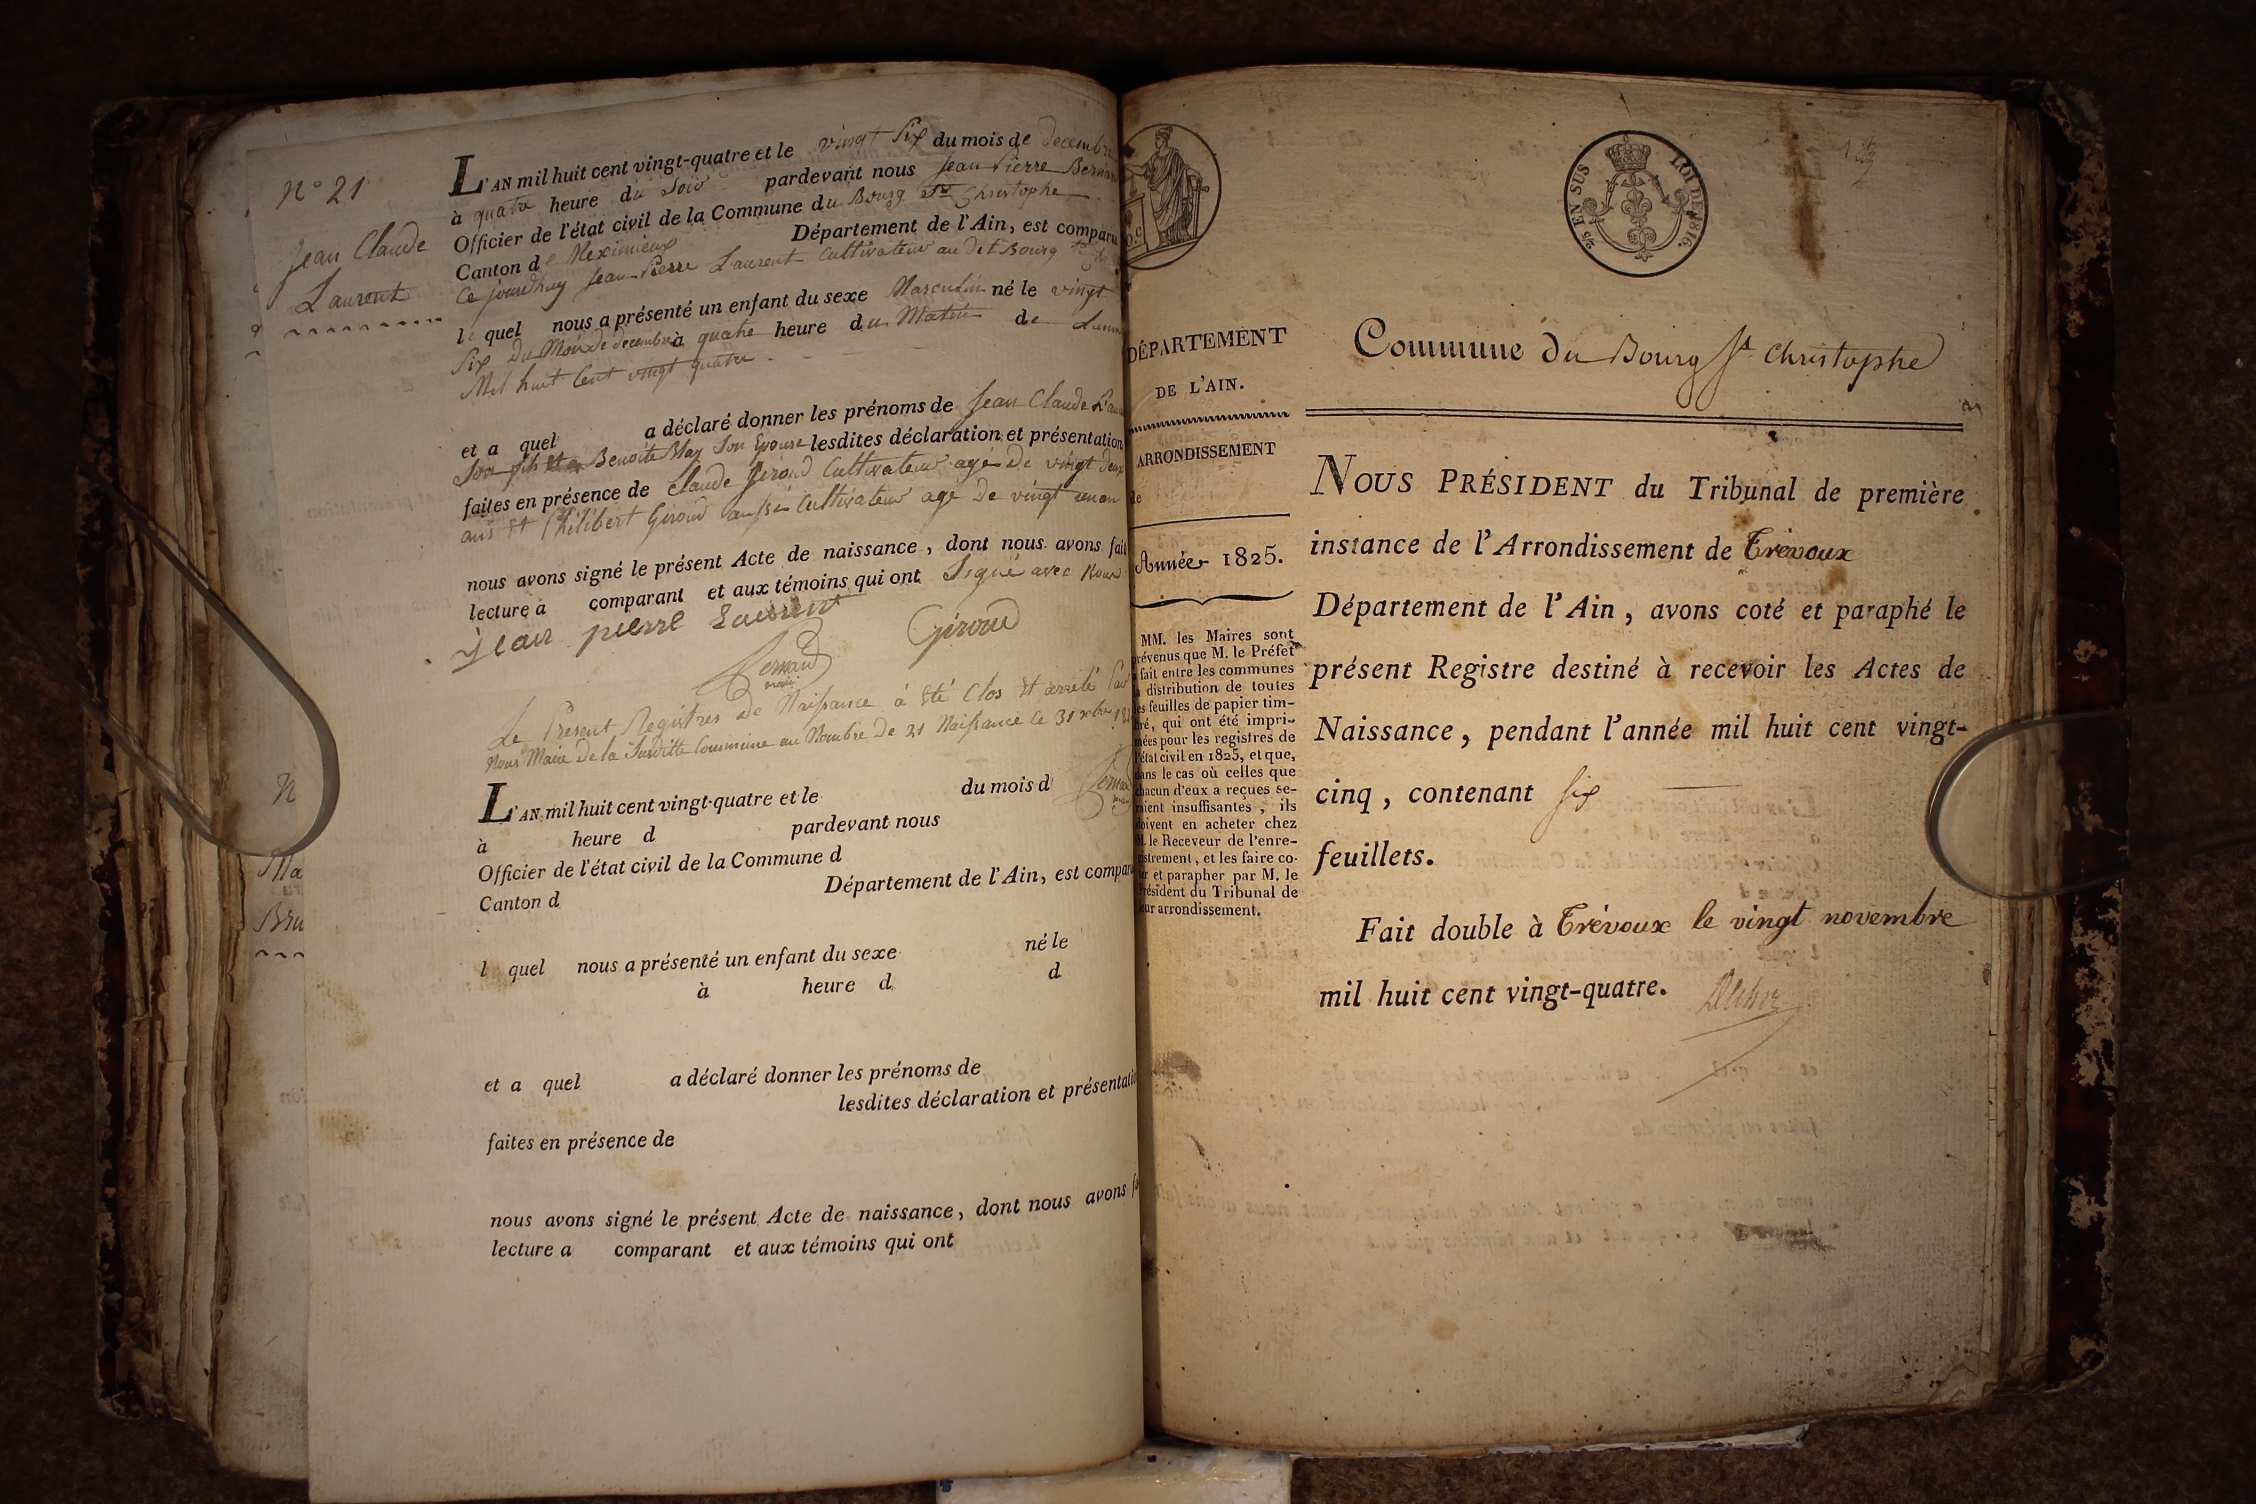 N° 21
Jean Claude
Laurent
L'AN mil huit cent vingt-quatre et le vingt Six du mois de decembre
à quatre heure du Soir pardevant nous Jean Pierre Bernard
Officier de l'état civil de la Commune du Bourg St Christophe
Canton de Meximieux Département de l'Ain, est comparu
Ce jourdhuy Jean Pierre Laurent Cultivateur au dit Bourg
le quel nous a présenté un enfant du sexe Masculin né le vingt
Six du Mois de decembre à quatre heure du Matin de
Mil huit Cent vingt quatre
et a quel a déclaré donner les prénoms de Jean Claude
Son fils et Benoite May Son Epouse lesdites déclaration et présentation
faites en présence de Claude Giroud Cultivateur agé de vingt deux
ans et Philibert Giroud aussi Cultivateur agé de vingt un an
nous avons signé le présent Acte de naissance, dont nous avons fait
lecture a comparant et aux témoins qui ont Signé avec Nous
jean pierre Laurent
Giroud
Bernard
Le Présent Registres de Naissance à été Clos et arrêté Par
Nous Maire de la Susditte Commune au Nombre de 21 Naissance le 31 xbre
Bernard
L'AN mil huit cent vingt-quatre et le du mois d
à heure d pardevant nous
Officier de l'état civil de la Commune d
Canton d Département de l'Ain, est compar
l quel nous a présenté un enfant du sexe né le
à heure d d
et a quel a déclaré donner les prénoms de
lesdites déclaration et présentati
faites en présence de
nous avons signé le présent Acte de naissance, dont nous avons
lecture a comparant et aux témoins qui ont
N
Ma
Bru
2/5 EN SUS
ROI DE 1816.
DÉPARTEMENT
DE L'AIN.
ARRONDISSEMENT
de
Année 1825.
MM. les Maires sont
prévenus que M. le Préfet
a fait entre les communes
la distribution de toutes
les feuilles de papier tim-
bré, qui ont été impri-
mées pour les registres de
l'état civil en 1825, et que,
dans le cas où celles que
chacun d'eux a reçues se-
raient insuffisantes, ils
doivent en acheter chez
M. le Receveur de l'enre-
gistrement, et les faire co-
ter et parapher par M. le
Président du Tribunal de
leur arrondissement.
Commune du Bourg St Christophe
NOUS PRÉSIDENT du Tribunal de première
instance de l'Arrondissement de Trévoux
Département de l'Ain, avons coté et paraphé le
présent Registre destiné à recevoir les Actes de
Naissance, pendant l'année mil huit cent vingt-
cinq, contenant six
feuillets.
Fait double à Trévoux le vingt novembre
mil huit cent vingt-quatre.